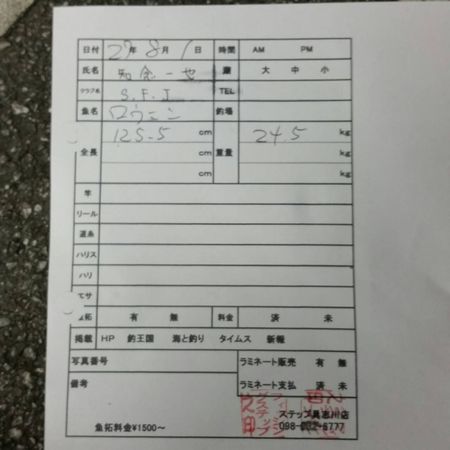 日付 27年 8月 1日 時間 AM PM
氏名 知念一也 潮 大 中 小
クラブ名 S.F.I TEL
魚名 ロウニン 釣場
全長 125.5 cm 重量 24.5 kg
cm kg
cm kg
竿
リール
道糸
ハリス
ハリ
エサ
魚拓 有 無 料金 済 未
掲載 HP 釣王国 海と釣り タイムス 新報
写真番号 ラミネート販売 有 無
備考 ラミネート支払 済 未
ステップ具志川店
魚拓料金¥1500~